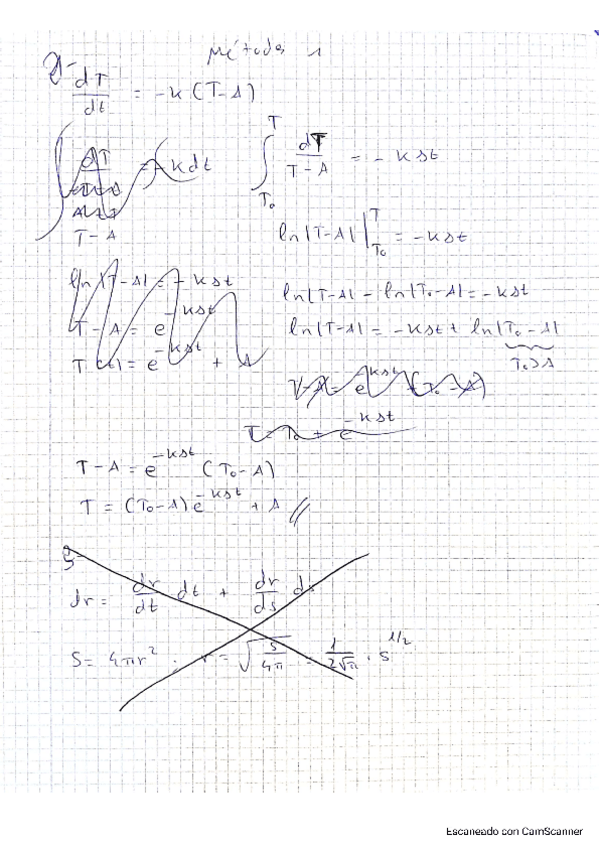 Métodos 1
2-
dT/dt = -k (T-A)
dT/T-A = -k dt
∫_{T₀}^{T} dT/T-A = -kΔt
ln|T-A| |_{T₀}^{T} = -kΔt
ln|T-A| = -kΔt
T-A = e^{-kΔt}
T(t) = e^{-kΔt} + A
ln|T-A| - ln|T₀-A| = -kΔt
ln|T-A| = -kΔt + ln|T₀-A|
T₀>A
T-A = e^{-kΔt} (T₀-A)
T = T₀ + e^{-kΔt}
T-A = e^{-kΔt} (T₀-A)
T = (T₀-A) e^{-kΔt} + A //
3-
dr = dr/dt dt + dr/ds ds
S = 4πr² ; r = √(S/4π) = 1/2√π · S^{1/2}
Escaneado con CamScanner